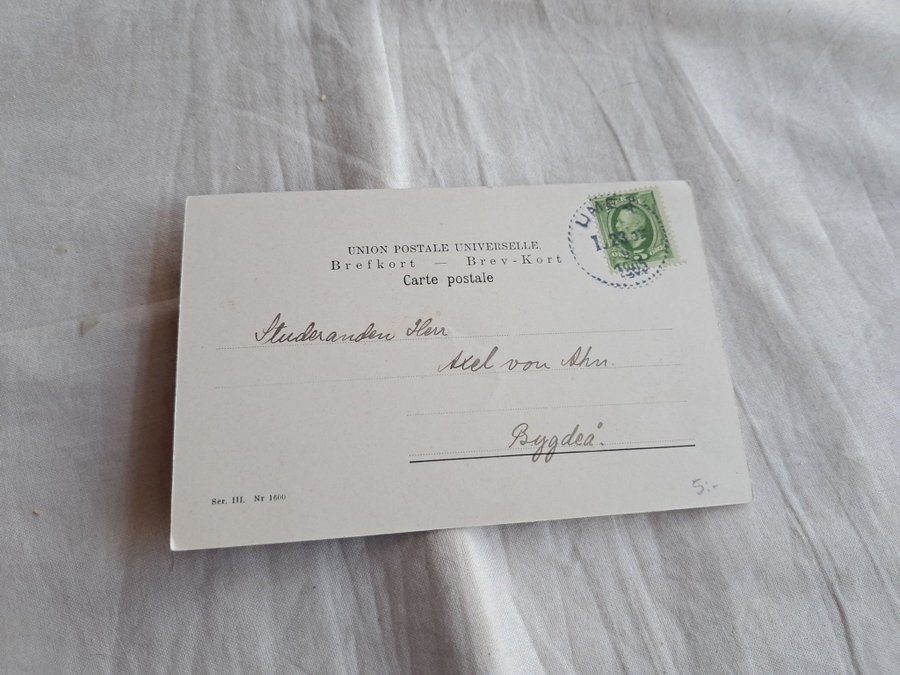 UNION POSTALE UNIVERSELLE.
Brefkort — Brev-Kort
Carte postale
Studeranden Herr
Axel von Ahn.
Bygdeå.
Ser. III. Nr 1600
5:-